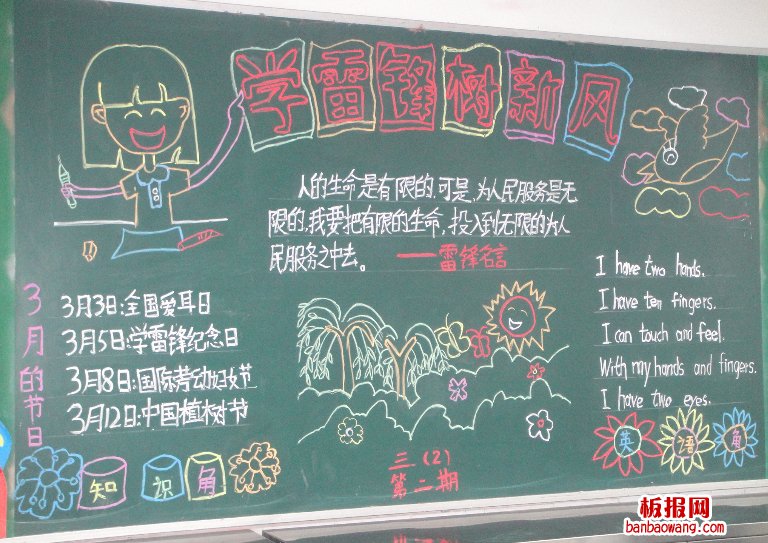 学雷锋树新风
人的生命是有限的,可是,为人民服务是无
限的,我要把有限的生命,投入到无限的为人
民服务之中去。 ——雷锋名言
3月的节日
3月3日:全国爱耳日
3月5日:学雷锋纪念日
3月8日:国际劳动妇女节
3月12日:中国植树节
知识角
I have two hands.
I have ten fingers.
I can touch and feel.
With my hands and fingers.
I have two eyes.
英语角
三(2)
第二期
板报网
banbaowang.com